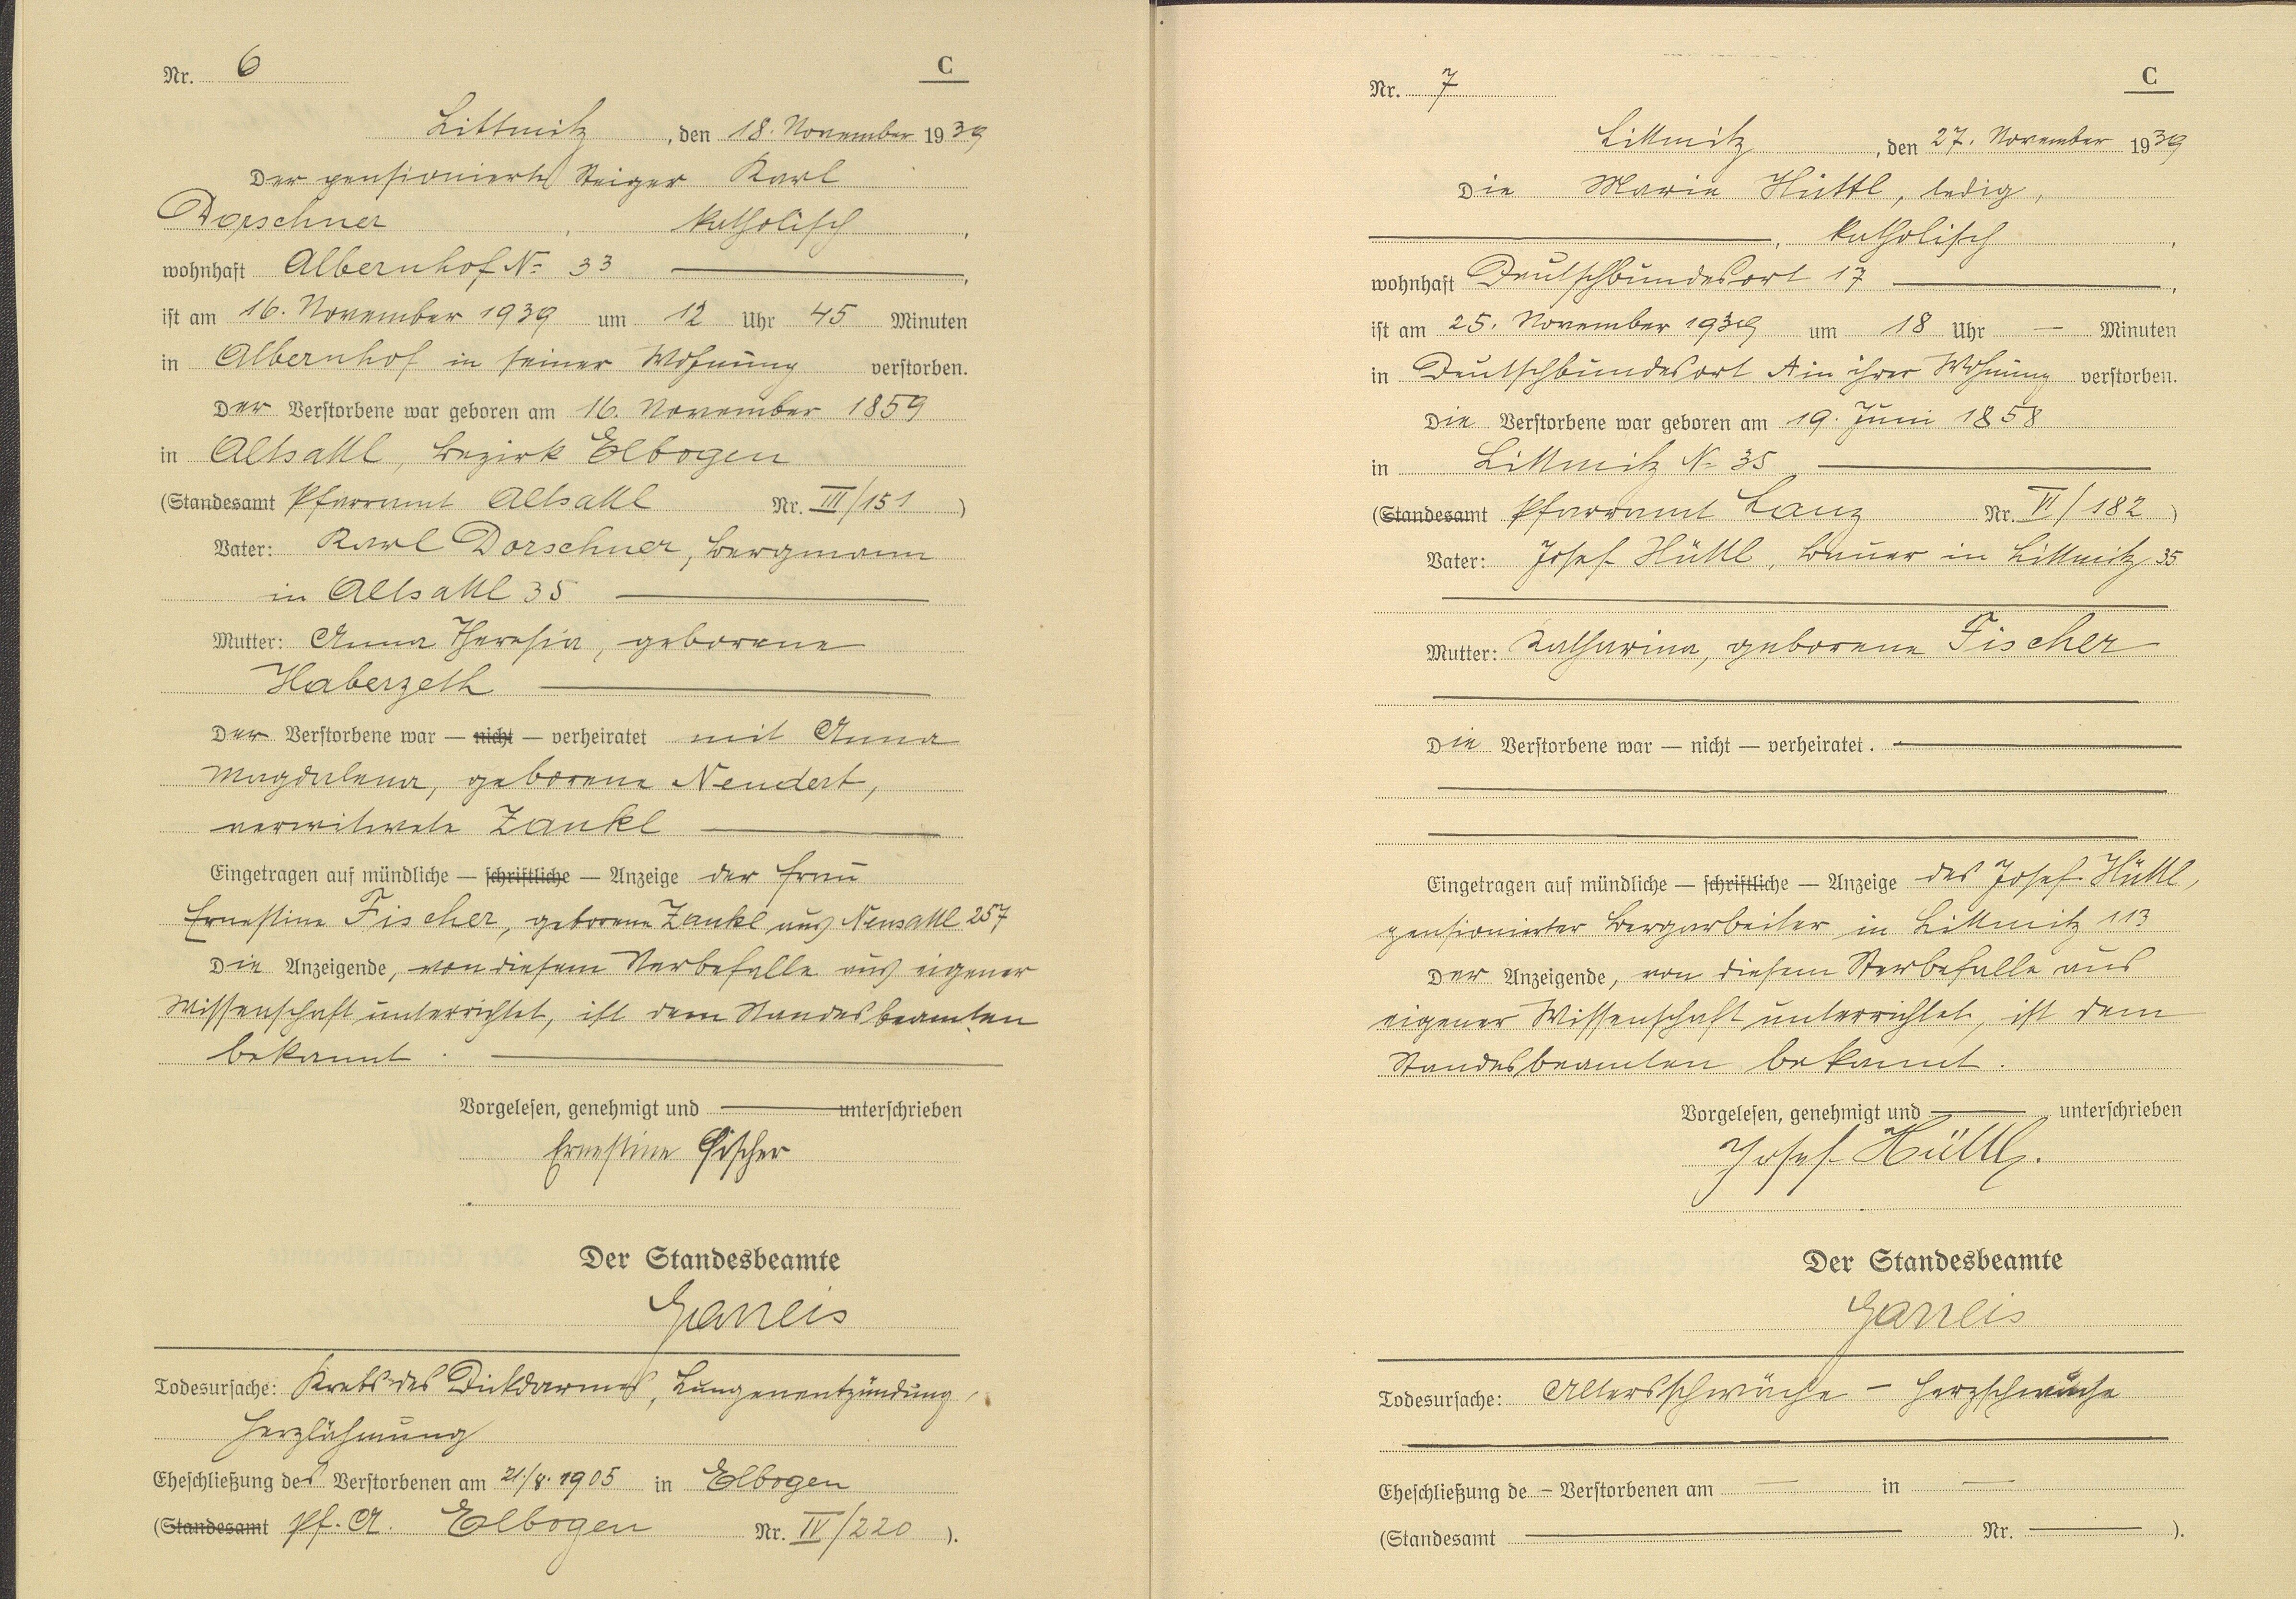 Nr. 6 C
Littmitz, den 18. November 1939
Der pensionierte Steiger Karl
Dorschner, katholisch,
wohnhaft Albernhof No 33,
ist am 16. November 1939 um 12 Uhr 45 Minuten
in Albernhof in seiner Wohnung verstorben.
Der Verstorbene war geboren am 16. November 1859
in Altsattl, Bezirk Elbogen
(Standesamt Pfarramt Altsattl Nr. III/151)
Vater: Karl Dorschner, Bergmann
in Altsattl 35
Mutter: Anna Theresia, geborene
Haberzeth
Der Verstorbene war — nicht — verheiratet mit Anna
Magdalena, geborene Neudert,
verwitwete Zankl
Eingetragen auf mündliche — schriftliche — Anzeige der Frau
Ernestine Fischer, geborene Zankl aus Neusattl 257
Die Anzeigende, von diesem Sterbefalle aus eigener
Wissenschaft unterrichtet, ist dem Standesbeamten
bekannt.
Vorgelesen, genehmigt und unterschrieben
Ernestine Fischer
Der Standesbeamte
Gareis
Todesursache: Krebs des Dickdarmes, Lungenentzündung,
Herzlähmung
Eheschließung des Verstorbenen am 21./8. 1905 in Elbogen
(Standesamt Pf. A. Elbogen Nr. IV/220).
Nr. 7 C
Littmitz, den 27. November 1939
Die Marie Hüttl, ledig,
, katholisch,
wohnhaft Deutschbundesort 17,
ist am 25. November 1939 um 18 Uhr — Minuten
in Deutschbundesort in ihrer Wohnung verstorben.
Die Verstorbene war geboren am 19. Juni 1858
in Littmitz No 35
(Standesamt Pfarramt Lanz Nr. VI/182)
Vater: Josef Hüttl, Bauer in Littmitz 35
Mutter: Katharina, geborene Fischer
Die Verstorbene war — nicht — verheiratet.
Eingetragen auf mündliche — schriftliche — Anzeige des Josef Hüttl,
pensionierter Bergarbeiter in Littmitz 113
Der Anzeigende, von diesem Sterbefalle aus
eigener Wissenschaft unterrichtet, ist dem
Standesbeamten bekannt.
Vorgelesen, genehmigt und unterschrieben
Josef Hüttl.
Der Standesbeamte
Gareis
Todesursache: Altersschwäche – Herzschwäche
Eheschließung de – Verstorbenen am — in —
(Standesamt Nr. ).